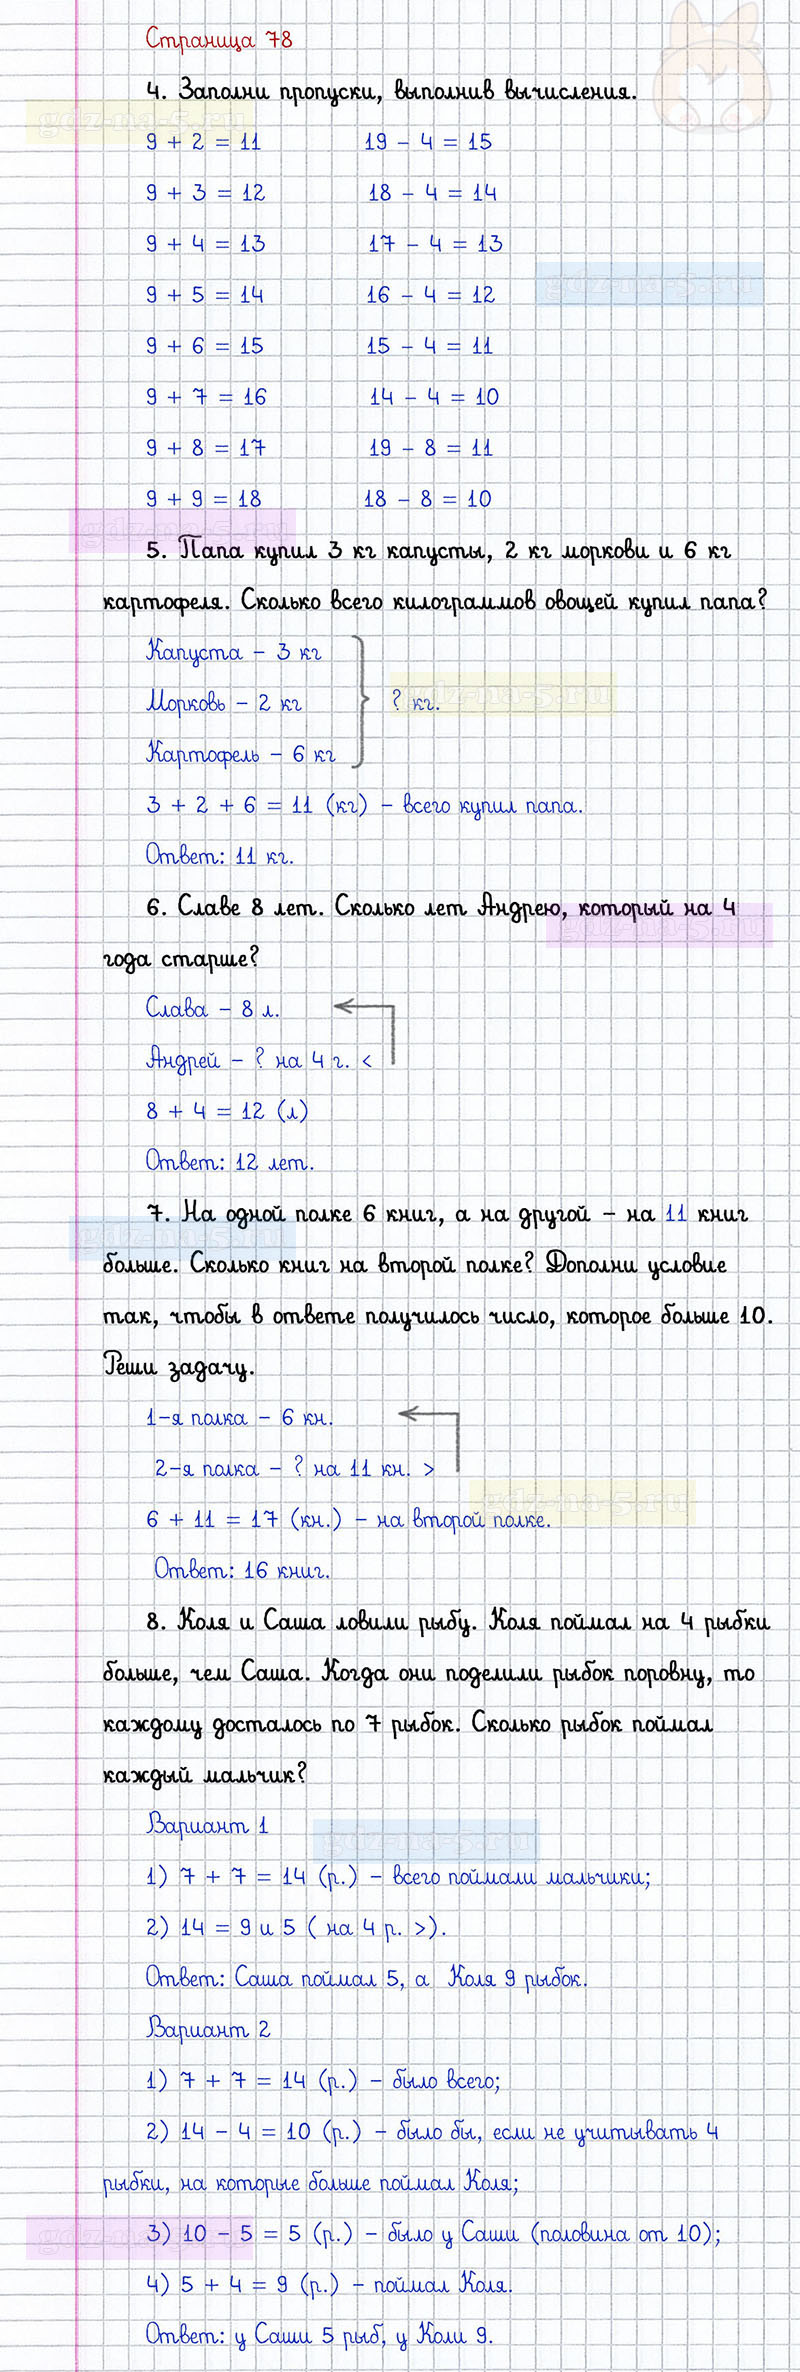 Страница 78
4. Заполни пропуски, выполнив вычисления.
gdz-na-5.ru
9 + 2 = 11 19 - 4 = 15
9 + 3 = 12 18 - 4 = 14
9 + 4 = 13 17 - 4 = 13
gdz-na-5.ru
9 + 5 = 14 16 - 4 = 12
9 + 6 = 15 15 - 4 = 11
9 + 7 = 16 14 - 4 = 10
9 + 8 = 17 19 - 8 = 11
9 + 9 = 18 18 - 8 = 10
gdz-na-5.ru
5. Папа купил 3 кг капусты, 2 кг моркови и 6 кг
картофеля. Сколько всего килограммов овощей купил папа?
Капуста - 3 кг
Морковь - 2 кг ? кг.
gdz-na-5.ru
Картофель - 6 кг
3 + 2 + 6 = 11 (кг) - всего купил папа.
Ответ: 11 кг.
6. Славе 8 лет. Сколько лет Андрею, который на 4
gdz-na-5.ru
года старше?
Слава - 8 л.
Андрей - ? на 4 г. <
8 + 4 = 12 (л)
Ответ: 12 лет.
7. На одной полке 6 книг, а на другой - на 11 книг
gdz-na-5.ru
больше. Сколько книг на второй полке? Дополни условие
так, чтобы в ответе получилось число, которое больше 10.
Реши задачу.
1-я полка - 6 кн.
2-я полка - ? на 11 кн. >
gdz-na-5.ru
6 + 11 = 17 (кн.) - на второй полке.
Ответ: 16 книг.
8. Коля и Саша ловили рыбу. Коля поймал на 4 рыбки
больше, чем Саша. Когда они поделили рыбок поровну, то
каждому досталось по 7 рыбок. Сколько рыбок поймал
каждый мальчик?
Вариант 1
gdz-na-5.ru
1) 7 + 7 = 14 (р.) - всего поймали мальчики;
2) 14 = 9 и 5 ( на 4 р. >).
Ответ: Саша поймал 5, а Коля 9 рыбок.
Вариант 2
1) 7 + 7 = 14 (р.) - было всего;
2) 14 - 4 = 10 (р.) - было бы, если не учитывать 4
рыбки, на которые больше поймал Коля;
gdz-na-5.ru
3) 10 - 5 = 5 (р.) - было у Саши (половина от 10);
4) 5 + 4 = 9 (р.) - поймал Коля.
Ответ: у Саши 5 рыб, у Коли 9.